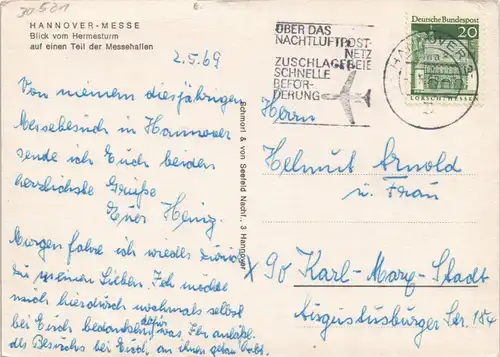 30 5 01
HANNOVER-MESSE
Blick vom Hermesturm
auf einen Teil der Messehallen
2.5.69
Von meinem diesjährigen
Messebesuch in Hannover
sende ich Euch beiden
herzlichste Grüße
Euer Heinz.
Morgen fahre ich wieder zurück
zu meinen Lieben. Ich möchte
mich hierdurch nochmals selbst
bei Euch bedanken dafür was Ihr anläßl.
des Besuchs bei Euch, an ihnen getan habt.
Schmorl & von Seefeld Nachf., 3 Hannover
ÜBER DAS
NACHTLUFTPOST-
NETZ
ZUSCHLAGFREIE
SCHNELLE
BEFÖR-
DERUNG
HANNOVER
Deutsche Bundespost
20
LORSCH/HESSEN
Herrn
Helmut Arnold
u. Frau
x 90 Karl-Marx-Stadt
Augustusburger Str. 184